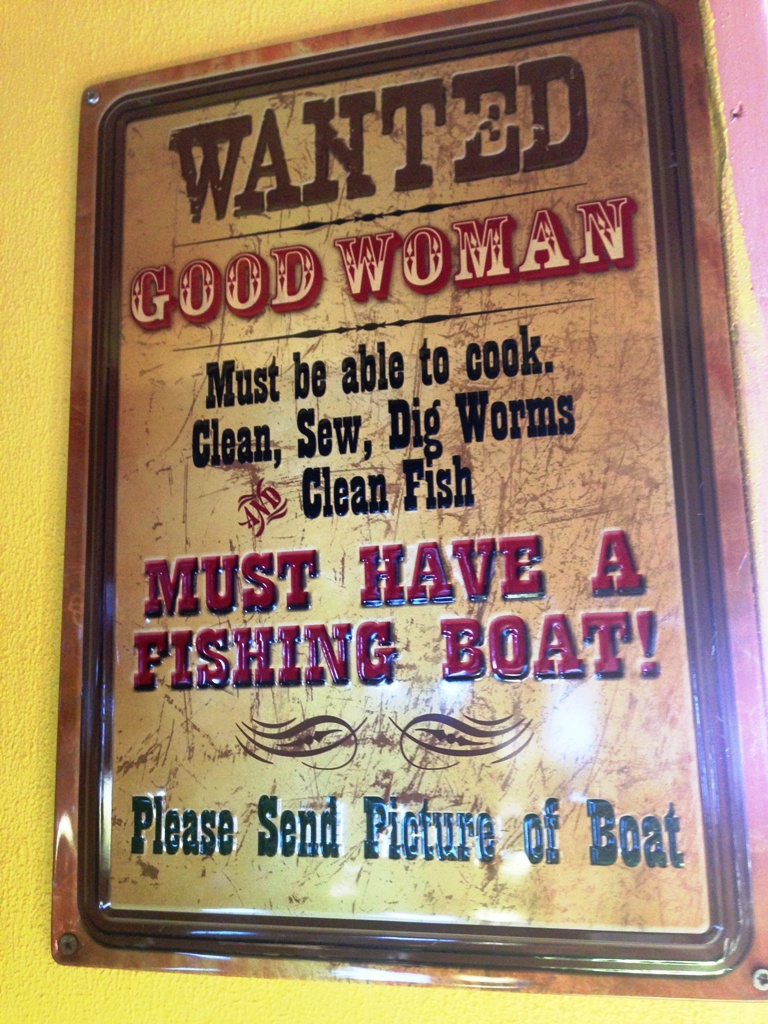 WANTED
GOOD WOMAN
Must be able to cook.
Clean, Sew, Dig Worms
AND Clean Fish
MUST HAVE A
FISHING BOAT!
Please Send Picture of Boat